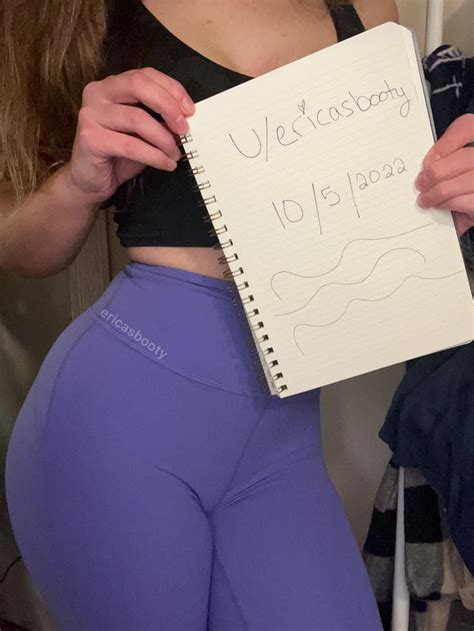 u/ericasbooty
10/5/2022
ericasbooty